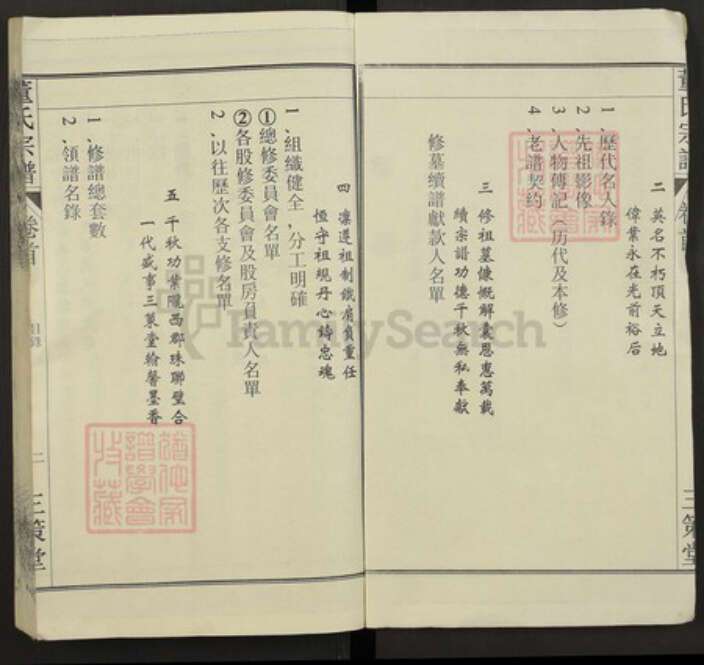 二 英名不朽頂天立地
偉業永在光前裕后
1、歷代名人錄
2、先祖影像
3、人物傳記（历代及本修）
4、老譜契约
三 修祖墓慷慨解囊恩惠萬載
續宗譜功德千秋無私奉獻
修墓續譜獻款人名單
三策堂
四 凜遵祖制鐵肩負重任
恆守祖規丹心鑄忠魂
1、組織健全，分工明確
①總修委員會名單
②各股修委員會及股房負責人名單
2、以往歷次各支修名單
五 千秋功業隴西郡珠聯璧合
一代盛事三策堂翰馨墨香
1、修譜總套數
2、領譜名錄
董氏宗譜 卷首 目錄 二 三策堂
FamilySearch